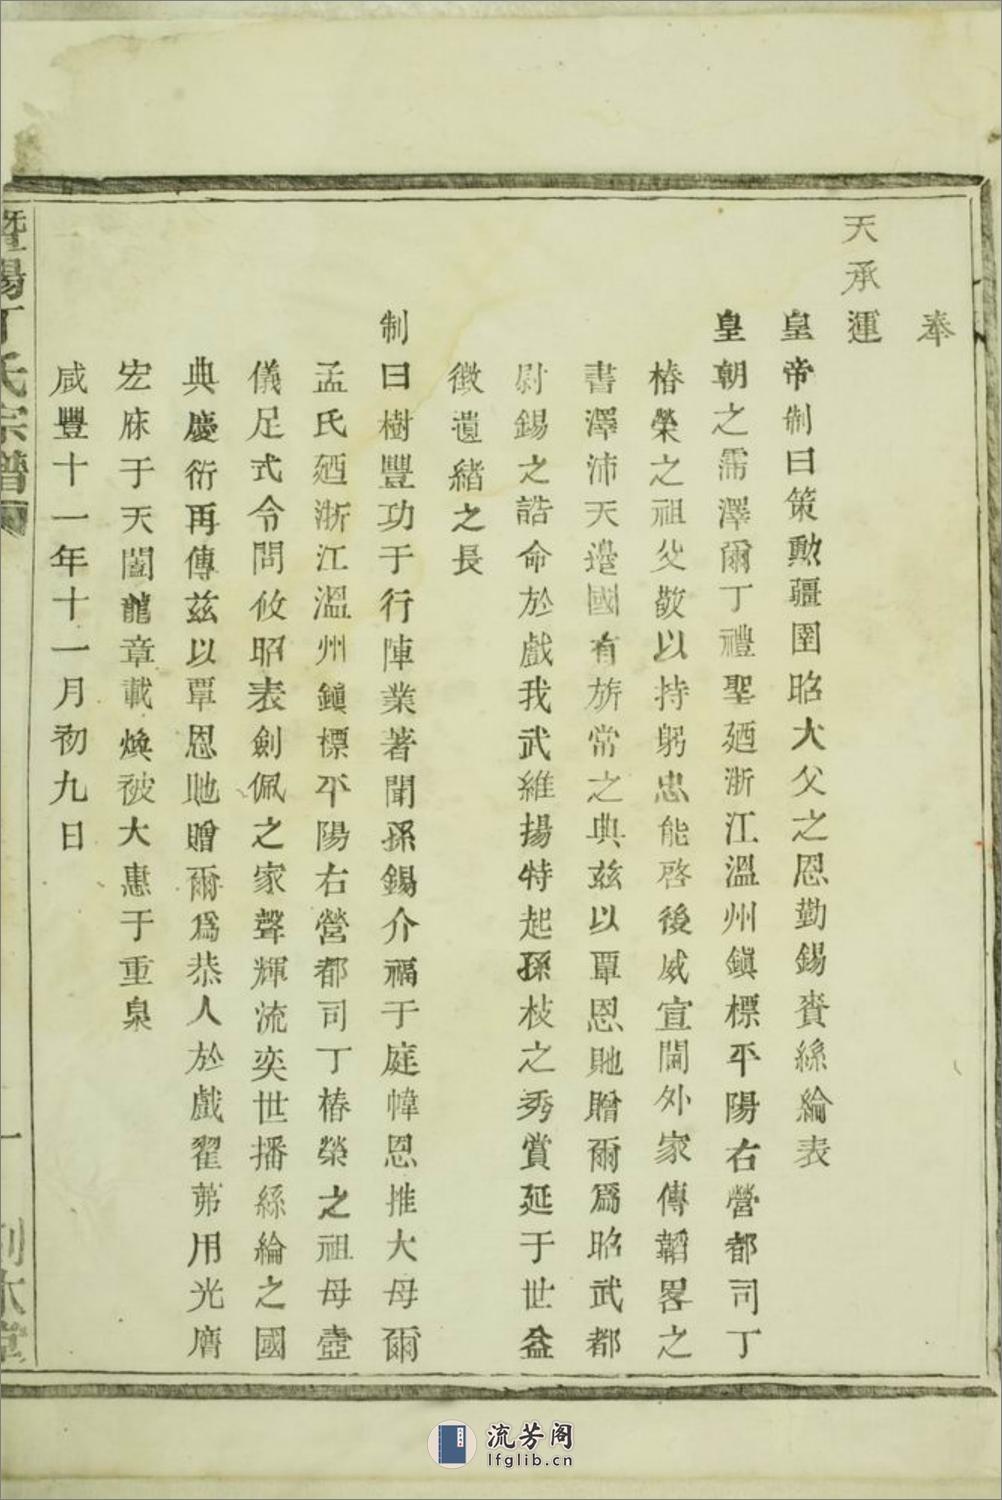 奉
天承運
皇帝制曰策勲疆圉昭大父之恩勤錫賚絲綸表
皇朝之需澤爾丁禮聖廼浙江溫州鎭標平陽右營都司丁
椿榮之祖父敬以持躬忠能啓後威宣閫外家傳韜畧之
書澤沛天邉國有旂常之典兹以覃恩貤贈爾爲昭武都
尉錫之誥命於戲我武維揚特起孫枝之秀賞延于世益
徵遺緒之長
制曰樹豐功于行陣業著聞孫錫介福于庭幃恩推大母爾
孟氏廼浙江溫州鎭標平陽右營都司丁椿榮之祖母壼
儀足式令問攸昭表劍佩之家聲輝流奕世播絲綸之國
典慶衍再傳兹以覃恩貤贈爾爲恭人於戲翟茀用光膺
宏庥于天闔龍章載煥被大惠于重泉
咸豐十一年十一月初九日
暨陽丁氏宗譜
一
流芳阁
lfglib.cn